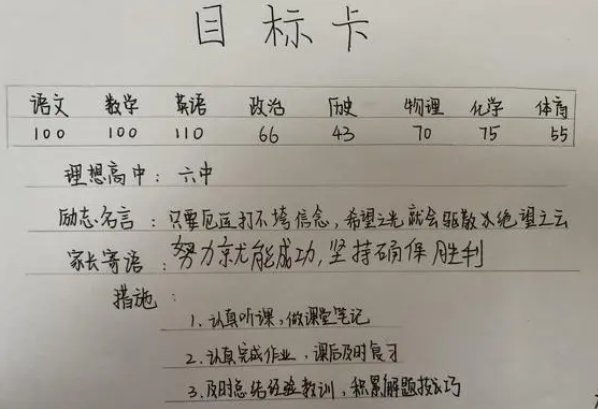 目标卡
语文 数学 英语 政治 历史 物理 化学 体育
100 100 110 66 43 70 75 55
理想高中：六中
励志名言：只要厄运打不垮信念，希望之光就会驱散绝望之云
家长寄语：努力就能成功，坚持确保胜利
措施：
1.认真听课，做课堂笔记
2.认真完成作业，课后及时复习
3.及时总结经验教训，积累解题技巧